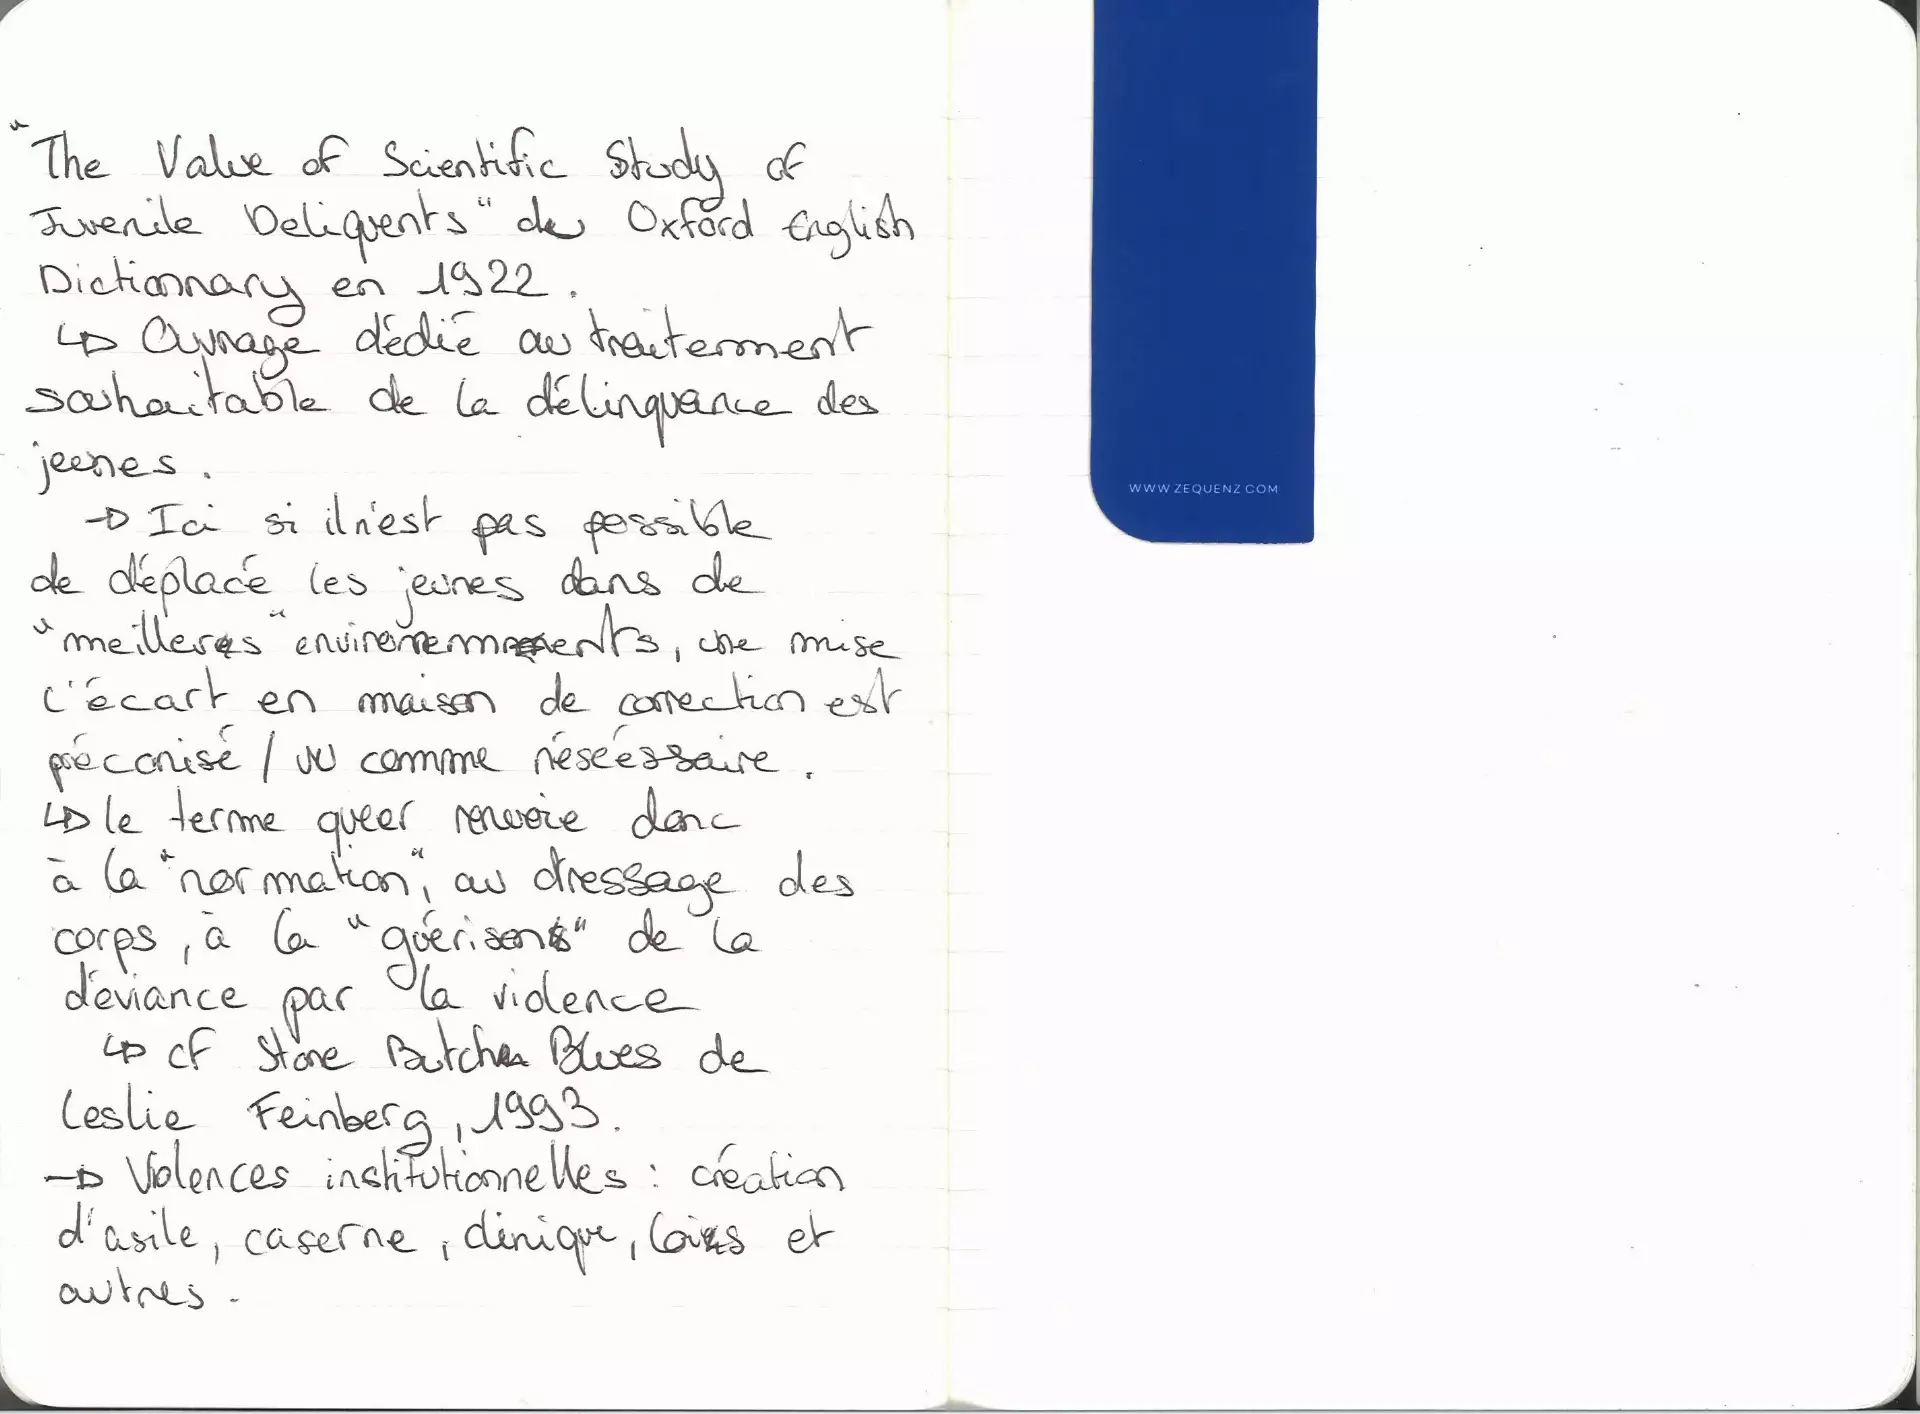 "The Value of Scientific Study of
Juvenile Deliquents" du Oxford English
Dictionnary en 1922.
↳ Ouvrage dédié au traitement
souhaitable de la délinquance des
jeunes.
→ Ici si il n'est pas possible
de déplacé les jeunes dans de
"meilleurs" environnements, une mise
l'écart en maison de correction est
préconisé / vu comme néséessaire.
↳ le terme queer renvoie donc
à la "normation", au dressage des
corps, à la "guérison" de la
déviance par la violence
↳ cf Stone Butch Blues de
Leslie Feinberg, 1993.
→ Violences institutionnelles : création
d'asile, caserne, clinique, lois et
autres.
WWW.ZEQUENZ.COM